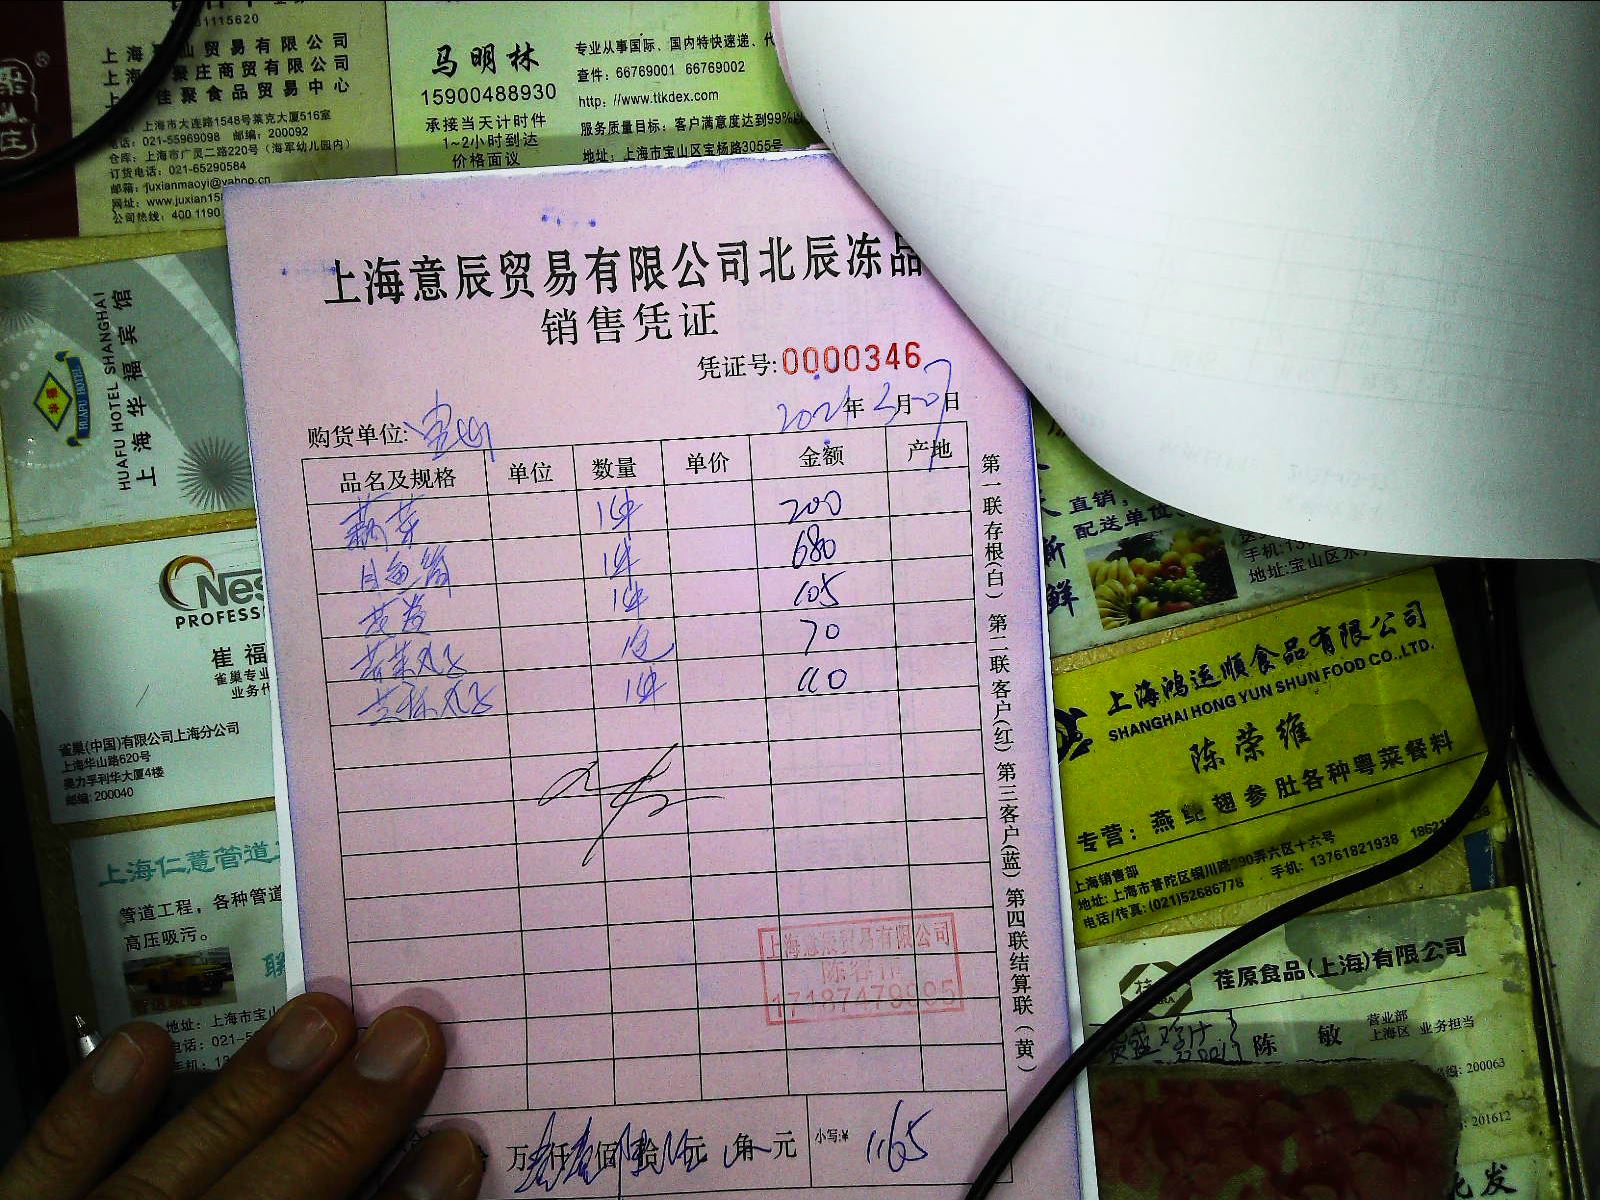 1115620
贸易有限公司
聚庄商贸有限公司
佳聚食品贸易中心
上海市大连路1548号莱克大厦516室
电话：021-55969098 邮编：200092
仓库：上海市广灵二路220号（海军幼儿园内）
订货电话：021-65290584
邮箱：juxianmaoyi@yahoo.cn
网址：www.juxian15
公司热线：400 1190
马明林
15900488930
承接当天计时件
1~2小时到达
价格面议
专业从事国际、国内特快速递、代
查件：66769001 66769002
http：//www.ttkdex.com
服务质量目标：客户满意度达到99%以
地址：上海市宝山区宝杨路3055号
HUAFU HOTEL
HUAFU HOTEL SHANGHAI
上海华福宾馆
Nes
PROFESS
崔福
雀巢专业
业务代
雀巢(中国)有限公司上海分公司
上海华山路620号
美力孚利华大厦4楼
邮编：200040
上海仁薏管道工
管道工程，各种管道
高压吸污。
联
地址：上海市宝山
电话：021-5
手机：13
上海意辰贸易有限公司北辰冻品
销售凭证
凭证号:0000346
2021年3月07日
购货单位:
品名及规格 单位 数量 单价 金额 产地
藕芽 1件 200
目鱼筒 1件 680
1件 105
丸子 1包 70
丸子 1件 110
第一联存根(白) 第二联客户(红) 第三客户(蓝) 第四联结算联(黄)
上海意辰贸易有限公司
万仟佰拾元角元
小写:¥ 1165
直销，
配送单位
新鲜
手机:13
地址:宝山区水
上海鸿运顺食品有限公司
SHANGHAI HONG YUN SHUN FOOD CO.,LTD.
陈荣维
专营：燕鲍翅参肚各种粤菜餐料
上海销售部
地址：上海市普陀区铜川路390弄六区十六号
电话/传真：(021)52686778 手机：13761821938
荏原食品(上海)有限公司
陈敏 营业部
上海区 业务担当
200063
201612
批发